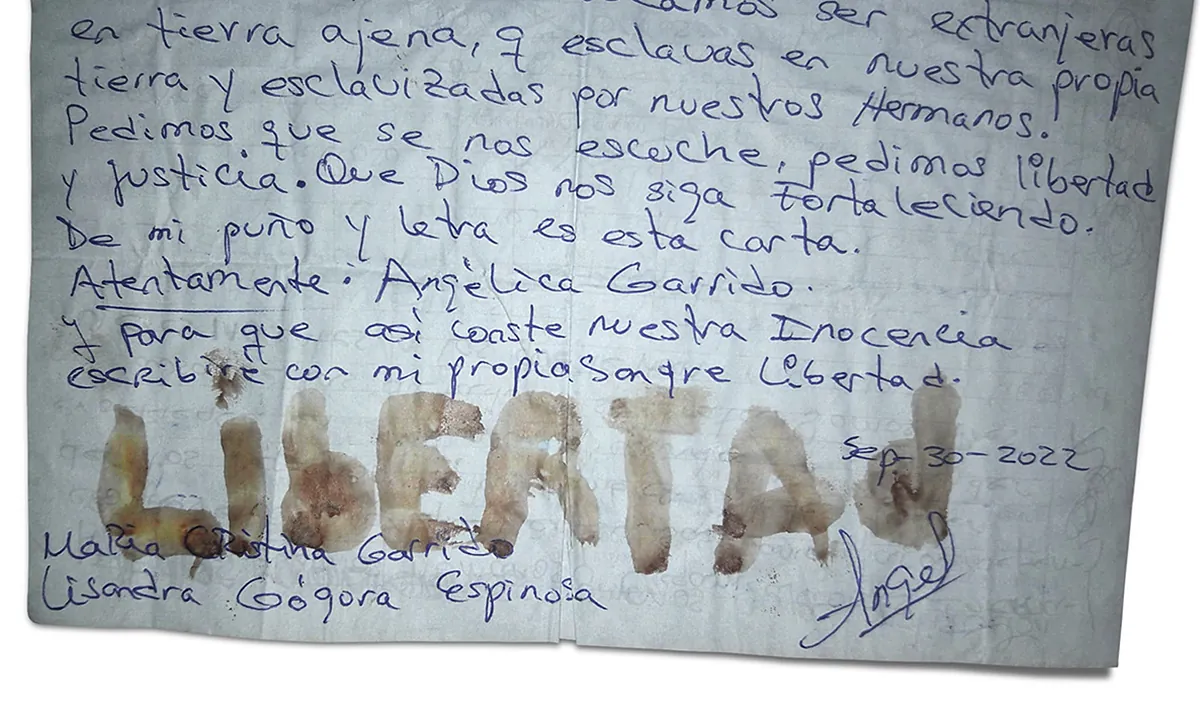 ser extranjeras
en tierra ajena, q esclavas en nuestra propia
tierra y esclavizadas por nuestros Hermanos.
Pedimos que se nos escuche, pedimos libertad
y justicia. Que Dios nos siga Fortaleciendo.
De mi puño y letra es esta carta.
Atentamente: Angèlica Garrido.
y para que así conste nuestra Inocencia
escribiré con mi propia Sangre Libertad.
LibERTAd
Sep-30-2022
Maria Cristina Garrido
Lisandra Gógora Espinosa
Angel